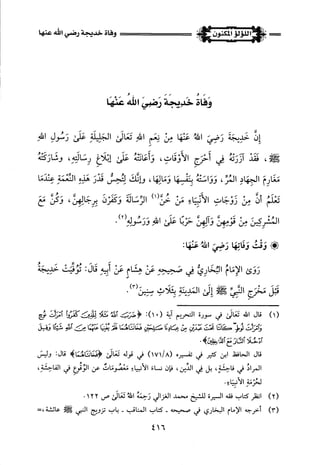 اللؤلؤ المكنون
وفاة خديجة رضي الله عنها
وفاة خديجة رضي الله عنها
إن خديجة رضي الله عنها من نعم الله تعالى الجليلة على رسول الله
ﷺ، فقد آزرته في أحرج الأوقات، وأعانته على إبلاغ رسالته، وشاركته
مغارم الجهاد المر، وواسته بنفسها ومالها، وإنك لتحس قدر هذه النعمة عندما
تعلم أن من زوجات الأنبياء من خن (١) الرسالة وكفرن برجالهن، وكن مع
المشركين من قومهن وآلهن حربا على الله ورسوله (٢).
◉ وقت وفاتها رضي الله عنها:
روى الإمام البخاري في صحيحه عن هشام عن أبيه قال: توفيت خديجة
قبل مخرج النبي ﷺ إلى المدينة بثلاث سنين (٣).
(١) قال الله تعالى في سورة التحريم آية (١٠):
قال الحافظ ابن كثير في تفسيره (١٧١/٨) في قوله تعالى ﴿فخانتاهما﴾ قال: وليس
المراد في فاحشة، بل في الدين، فإن نساء الأنبياء معصومات عن الوقوع في الفاحشة،
لحرمة الأنبياء.
(٢) انظر كتاب فقه السيرة للشيخ محمد الغزالي رحمه الله تعالى ص ١٢٢.
(٣) أخرجه الإمام البخاري في صحيحه - كتاب - باب تزويج النبي ﷺ عائشة، =
٤١٦